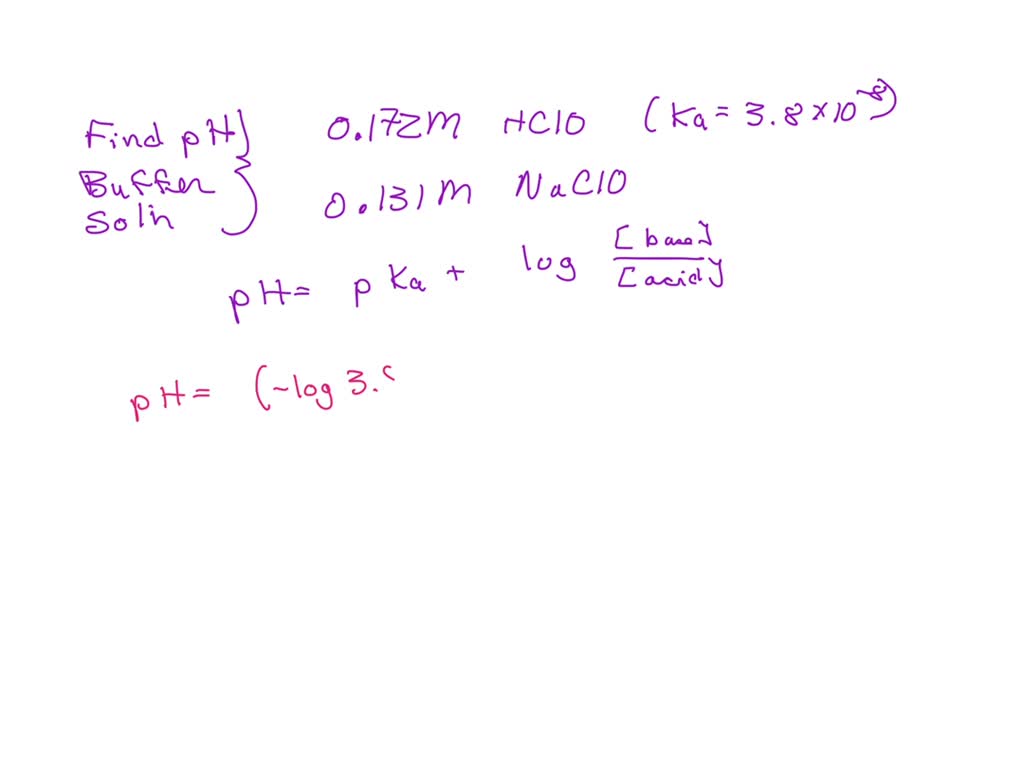 Find pH 0.172M HClO (Ka = 3.8 x 10^-8)
Buffer
Soln 0.131M NaClO
pH = pKa + log [base]/[acid]
pH = (-log 3.